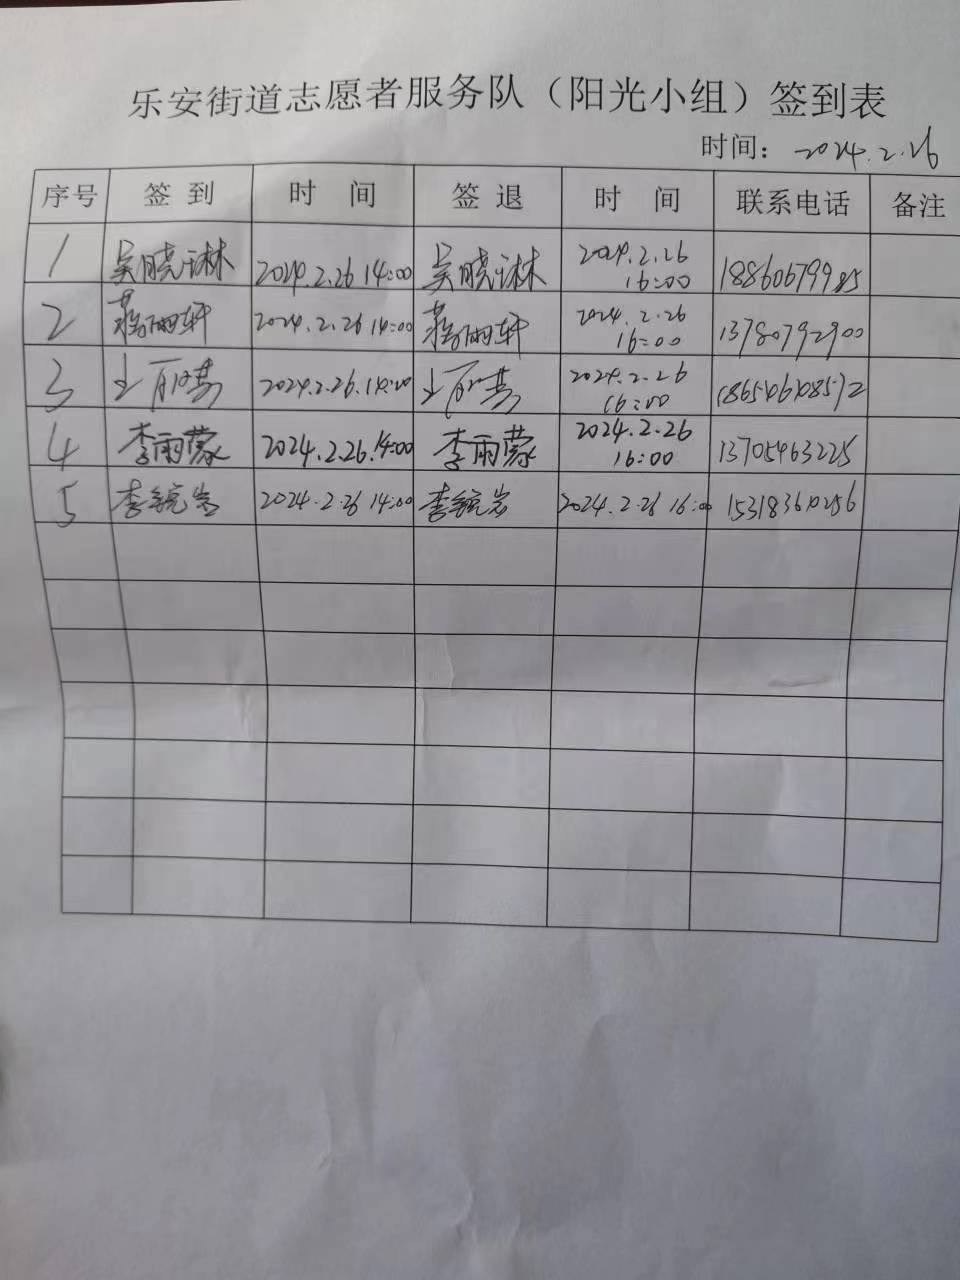 乐安街道志愿者服务队（阳光小组）签到表
时间：2024.2.26
序号 签到 时间 签退 时间 联系电话 备注
1 吴晓琳 2024.2.26 14:00 吴晓琳 2024.2.26 16:00 18860679985
2 2024.2.26 14:00 2024.2.26 16:00 13780792900
3 2024.2.26.14:00 2024.2.26 16:00
4 李雨蒙 2024.2.26.14:00 李雨蒙 2024.2.26 16:00 13705463225
5 2024.2.26 14:00 2024.2.26 16:00 153183610256